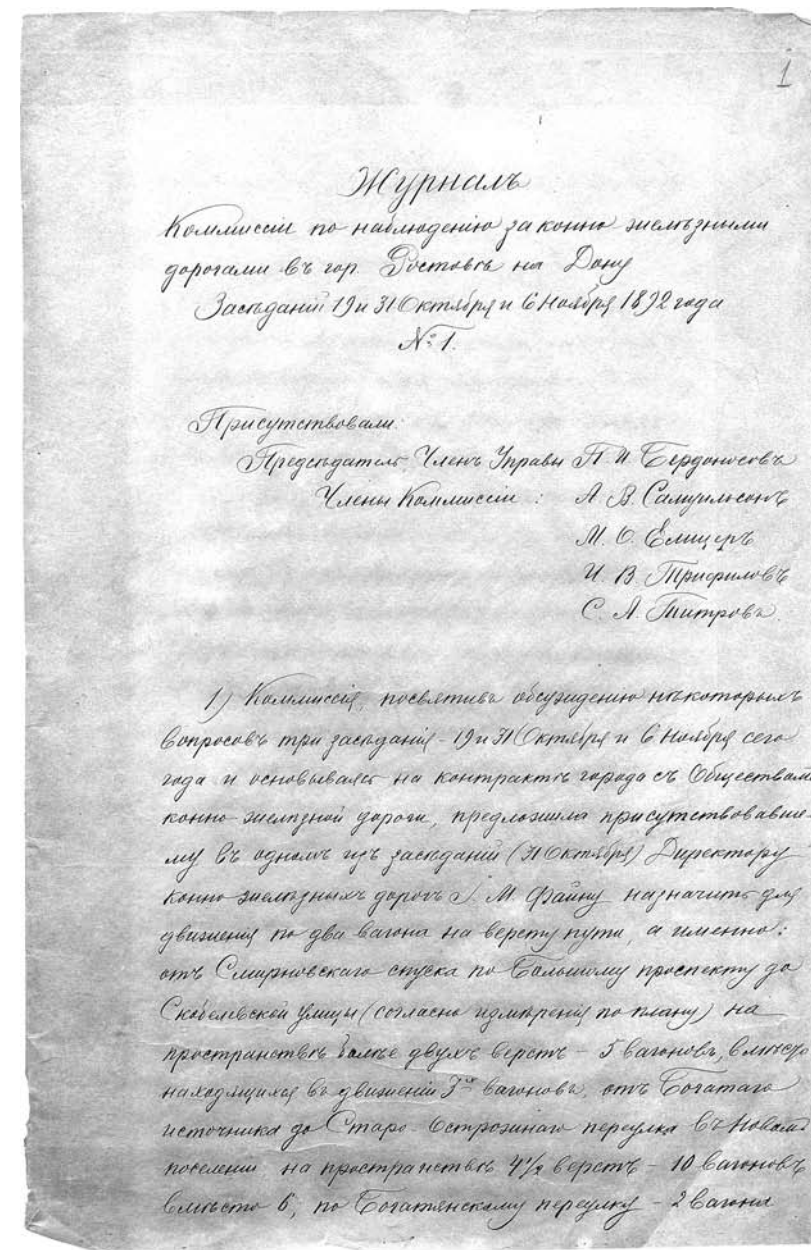 1
Журналъ
Коммиссіи по наблюденію за конно желѣзными
дорогами въ гор. Ростовѣ на Дону
Засѣданій 19 и 31 Октября и 6 Ноября 1892 года
№ 1.
Присутствовали:
Предсѣдатель Членъ Управы П. И. Бердоносовъ
Члены Коммиссіи: А. В. Самуильсонъ
М. О. Елицеръ
И. В. Трифиловъ
С. А. Титровъ.
1) Коммиссія, посвятивъ обсужденію нѣкоторыхъ
вопросовъ три засѣданія - 19 и 31 Октября и 6 Ноября сего
года и основываясь на контрактѣ города съ Обществомъ
конно-желѣзной дороги, предложила присутствовавше-
му въ одномъ изъ засѣданій (31 Октября) Директору
конно желѣзныхъ дорогъ М. Файну назначить для
движенія по два вагона на версту пути, а именно:
отъ Смирновскаго спуска по Большому проспекту до
Скобелевской улицы (согласно измѣренія по плану) на
пространствѣ болѣе двухъ верстъ - 5 вагоновъ, вмѣсто
находящихся въ движеніи 3х вагоновъ, отъ Богатаго
источника до Старо-Острожнаго переулка въ Новомъ
поселеніи на пространствѣ 4 1/2 верстъ - 10 вагоновъ
вмѣсто 6, по Богатянскому переулку - 2 вагона